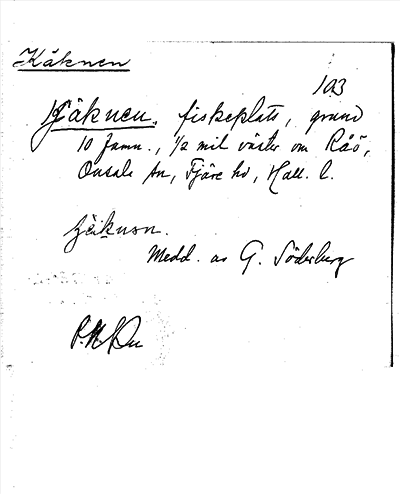 Käknen
103
Käknen, fiskeplats, grund
10 famn., 1/2 mil väster om Råö,
Onsala sn, Fjäre hd, Hall. l.
Medd. av G. Söderberg